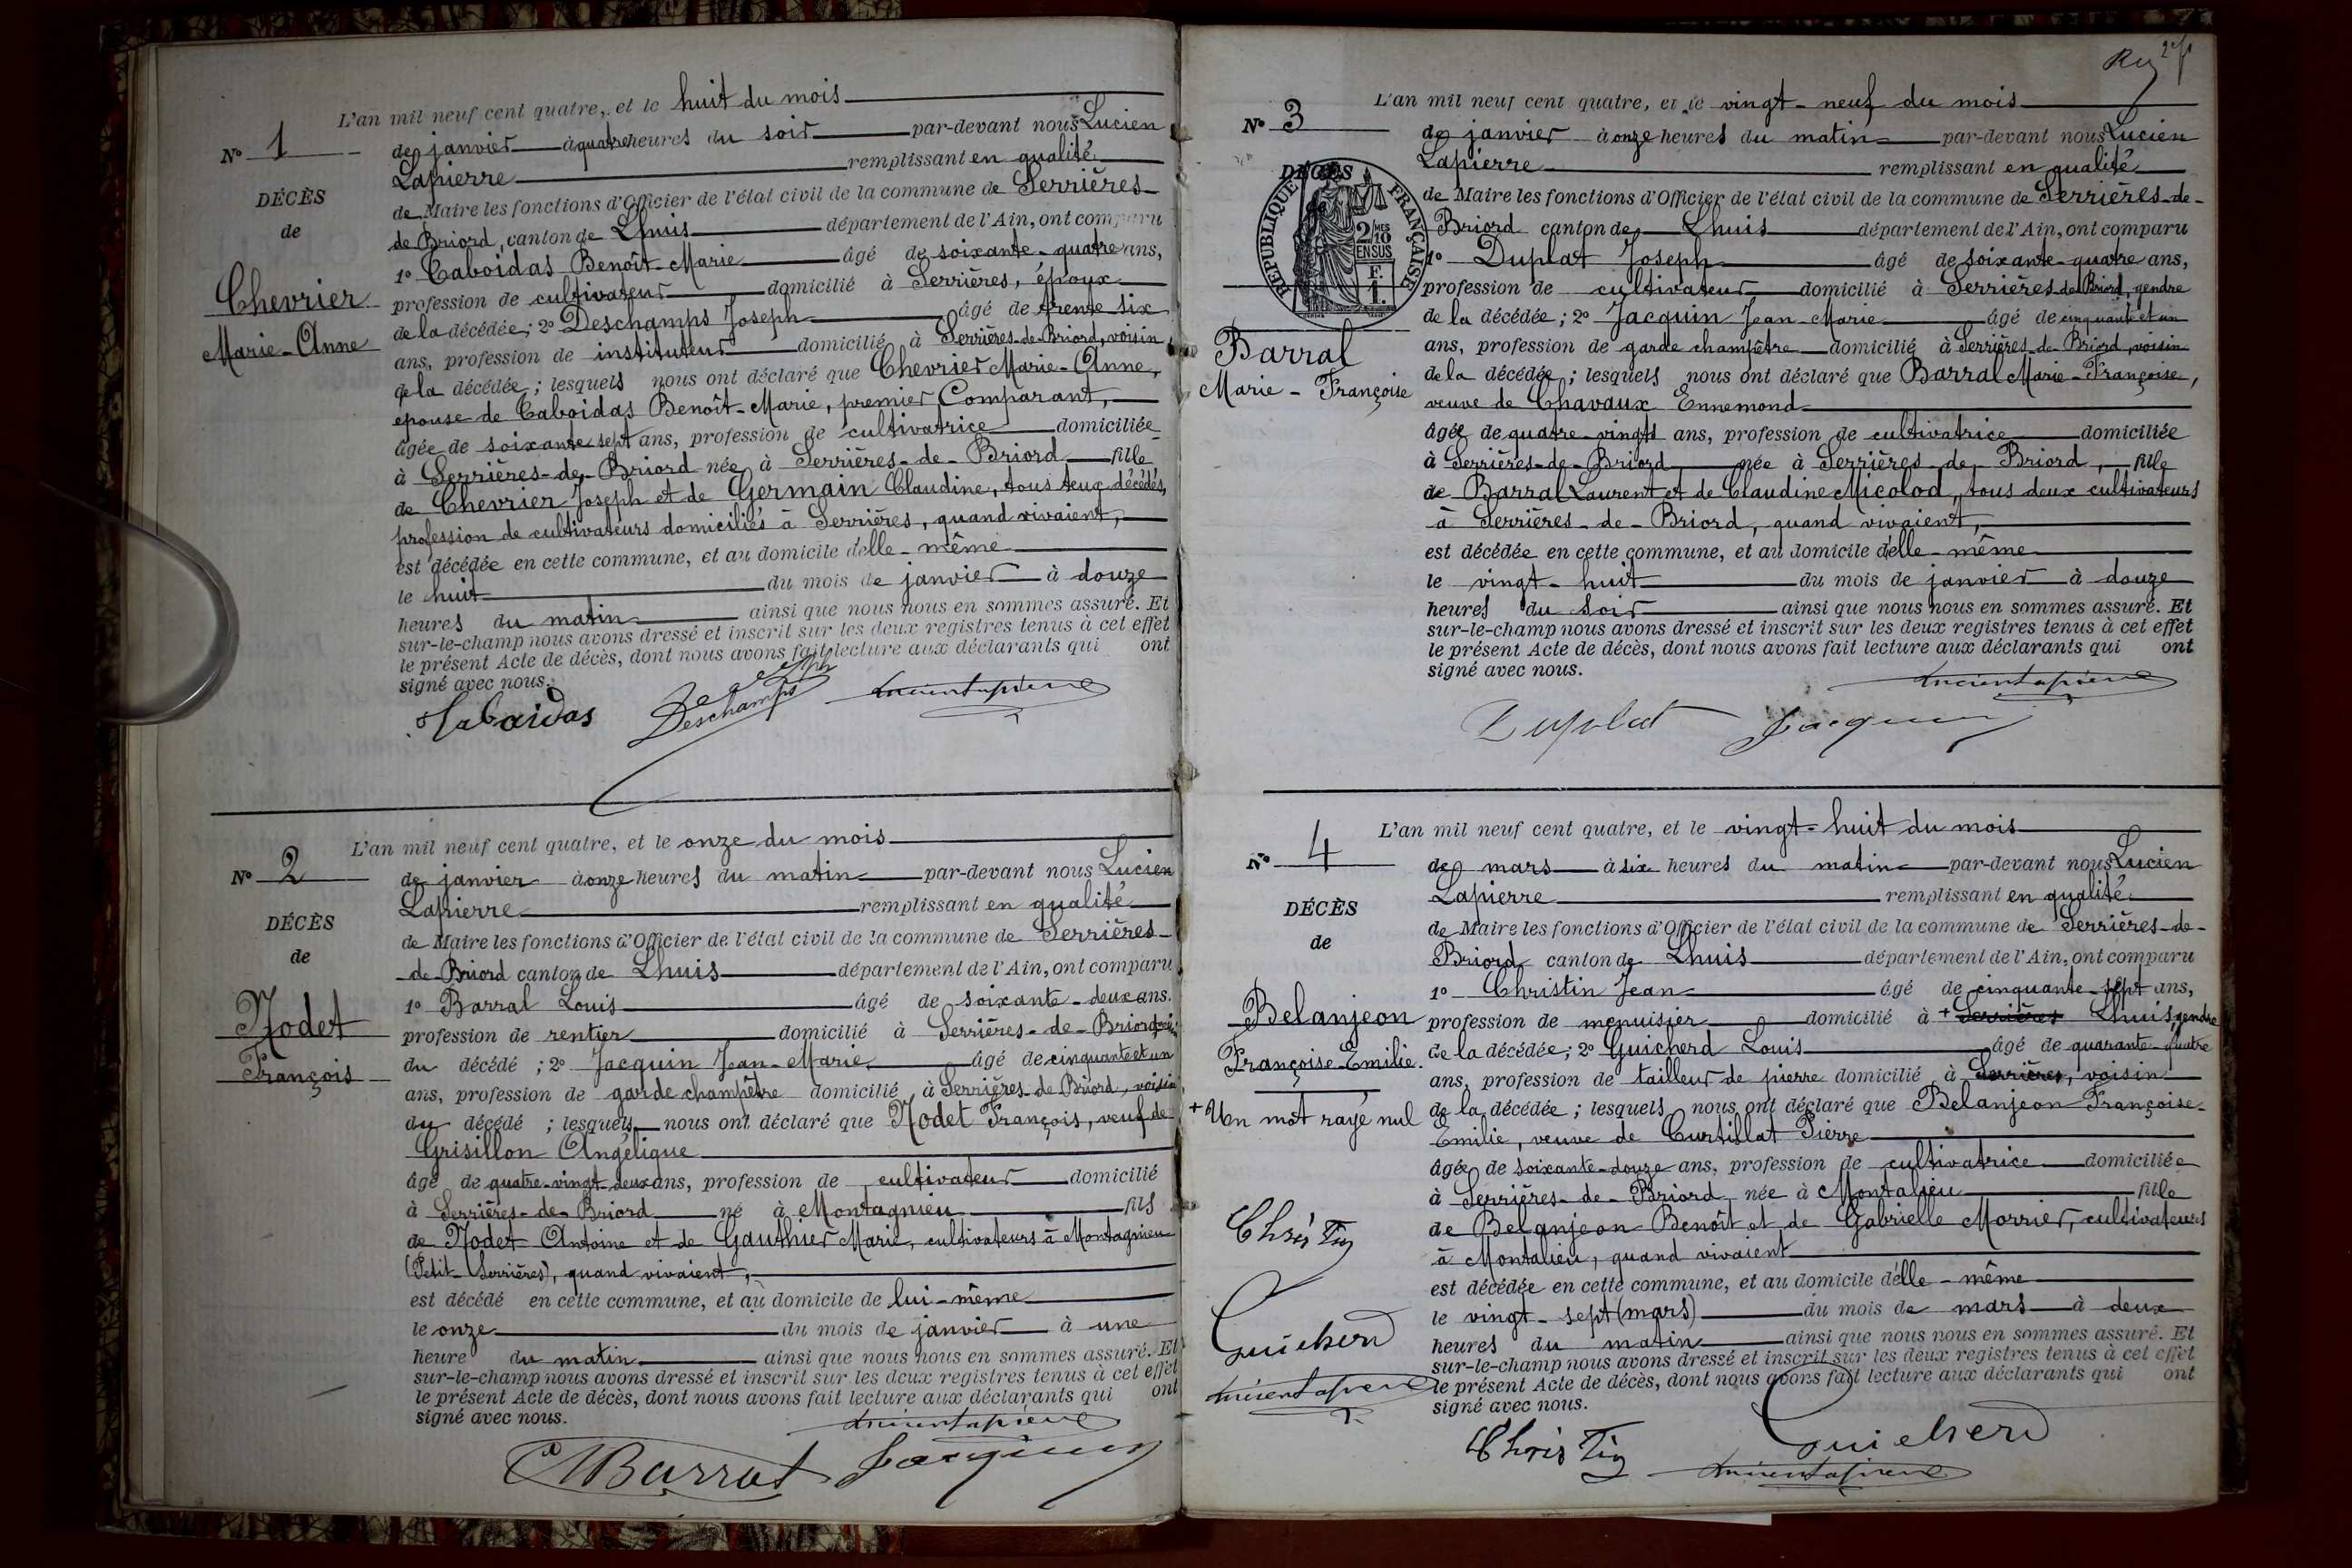 L'an mil neuf cent quatre, et le huit du mois
N° 1
de janvier à quatre heures du soir par-devant nous Lucien
Lapierre remplissant en qualité
DÉCÈS
de Maire les fonctions d'Officier de l'état civil de la commune de Serrières
de
de Briord, canton de Lhuis département de l'Ain, ont comparu
1° Caboidas Benoît-Marie âgé de soixante-quatre ans,
Chevrier
profession de cultivateur domicilié à Serrières, époux
de la décédée; 2° Deschamps Joseph âgé de trente six
Marie-Anne
ans, profession de instituteur domicilié à Serrières-de-Briord, voisin
de la décédée; lesquels nous ont déclaré que Chevrier Marie-Anne,
épouse de Caboidas Benoît-Marie, premier Comparant,
âgée de soixante sept ans, profession de cultivatrice domiciliée
à Serrières-de-Briord née à Serrières-de-Briord fille
de Chevrier Joseph et de Germain Claudine, tous deux décédés,
profession de cultivateurs domiciliés à Serrières, quand vivaient,
est décédée en cette commune, et au domicile d'elle-même
le huit du mois de janvier à douze
heures du matin ainsi que nous nous en sommes assuré. Et
sur-le-champ nous avons dressé et inscrit sur les deux registres tenus à cet effet
le présent Acte de décès, dont nous avons fait lecture aux déclarants qui ont
signé avec nous.
Cabaidas Deschamps Lucien Lapierre
L'an mil neuf cent quatre, et le onze du mois
N° 2
de janvier à onze heures du matin par-devant nous Lucien
Lapierre remplissant en qualité
DÉCÈS
de Maire les fonctions d'Officier de l'état civil de la commune de Serrières-
de
de-Briord canton de Lhuis département de l'Ain, ont comparu
1° Barral Louis âgé de soixante-deux ans.
Nodet
profession de rentier domicilié à Serrières-de-Briord,
François
du décédé; 2° Jacquin Jean-Marie âgé de cinquante et un
ans, profession de garde champêtre domicilié à Serrières-de Briord, voisin
du décédé; lesquels nous ont déclaré que Nodet François, veuf de
Grisillon Angélique
âgé de quatre-vingt-deux ans, profession de cultivateur domicilié
à Serrières-de-Briord né à Montagnieu fils
de Nodet Antoine et de Gauthier Marie, cultivateurs à Montagnieu
(Petit-Serrières), quand vivaient,
est décédé en cette commune, et au domicile de lui-même
le onze du mois de janvier à une
heure du matin ainsi que nous nous en sommes assuré. Et
sur-le-champ nous avons dressé et inscrit sur les deux registres tenus à cet effet
le présent Acte de décès, dont nous avons fait lecture aux déclarants qui ont
signé avec nous.
Lucien Lapierre
Barral Jacquin
L'an mil neuf cent quatre, et le vingt-neuf du mois
N° 3
de janvier à onze heures du matin par-devant nous Lucien
Lapierre remplissant en qualité
DÉCÈS
RÉPUBLIQUE FRANÇAISE
2/10 MES
EN SUS
F.
1.
de Maire les fonctions d'Officier de l'état civil de la commune de Serrières-de-
Briord canton de Lhuis département de l'Ain, ont comparu
1° Duplat Joseph âgé de soixante-quatre ans,
profession de cultivateur domicilié à Serrières de Briord, gendre
de la décédée; 2° Jacquin Jean-Marie âgé de cinquante et un
Barral
ans, profession de garde champêtre domicilié à Serrières-de-Briord, voisin
de la décédée; lesquels nous ont déclaré que Barral Marie-Françoise,
Marie-Françoise
veuve de Chavaux Ennemond
âgée de quatre-vingts ans, profession de cultivatrice domiciliée
à Serrières-de-Briord née à Serrières-de-Briord, fille
de Barral Laurent et de Claudine Micolod, tous deux cultivateurs
à Serrières-de-Briord, quand vivaient,
est décédée en cette commune, et au domicile d'elle-même
le vingt-huit du mois de janvier à douze
heures du soir ainsi que nous nous en sommes assuré. Et
sur-le-champ nous avons dressé et inscrit sur les deux registres tenus à cet effet
le présent Acte de décès, dont nous avons fait lecture aux déclarants qui ont
signé avec nous.
Lucien Lapierre
Duplat Jacquin
L'an mil neuf cent quatre, et le vingt-huit du mois
N° 4
de mars à six heures du matin par-devant nous Lucien
Lapierre remplissant en qualité
DÉCÈS
de Maire les fonctions d'Officier de l'état civil de la commune de Serrières-de-
de
Briord canton de Lhuis département de l'Ain, ont comparu
1° Christin Jean âgé de cinquante-sept ans,
Belanjeon
profession de menuisier domicilié à + Serrières Lhuis, gendre
Françoise-Emilie.
de la décédée; 2° Guicherd Louis âgé de quarante-quatre
ans, profession de tailleur de pierre domicilié à Serrières, voisin
+ Un mot rayé nul
de la décédée; lesquels nous ont déclaré que Belanjeon Françoise-
Emilie, veuve de Curtillat Pierre
âgée de soixante-douze ans, profession de cultivatrice domiciliée
à Serrières-de-Briord née à Montalieu fille
de Belanjeon Benoît et de Gabrielle Morrier, cultivateurs
Christin
à Montalieu, quand vivaient
est décédée en cette commune, et au domicile d'elle-même
le vingt-sept (mars) du mois de mars à deux
Guicherd
heures du matin ainsi que nous nous en sommes assuré. Et
sur-le-champ nous avons dressé et inscrit sur les deux registres tenus à cet effet
Lucien Lapierre
le présent Acte de décès, dont nous avons fait lecture aux déclarants qui ont
signé avec nous.
Christin Guicherd
Lucien Lapierre